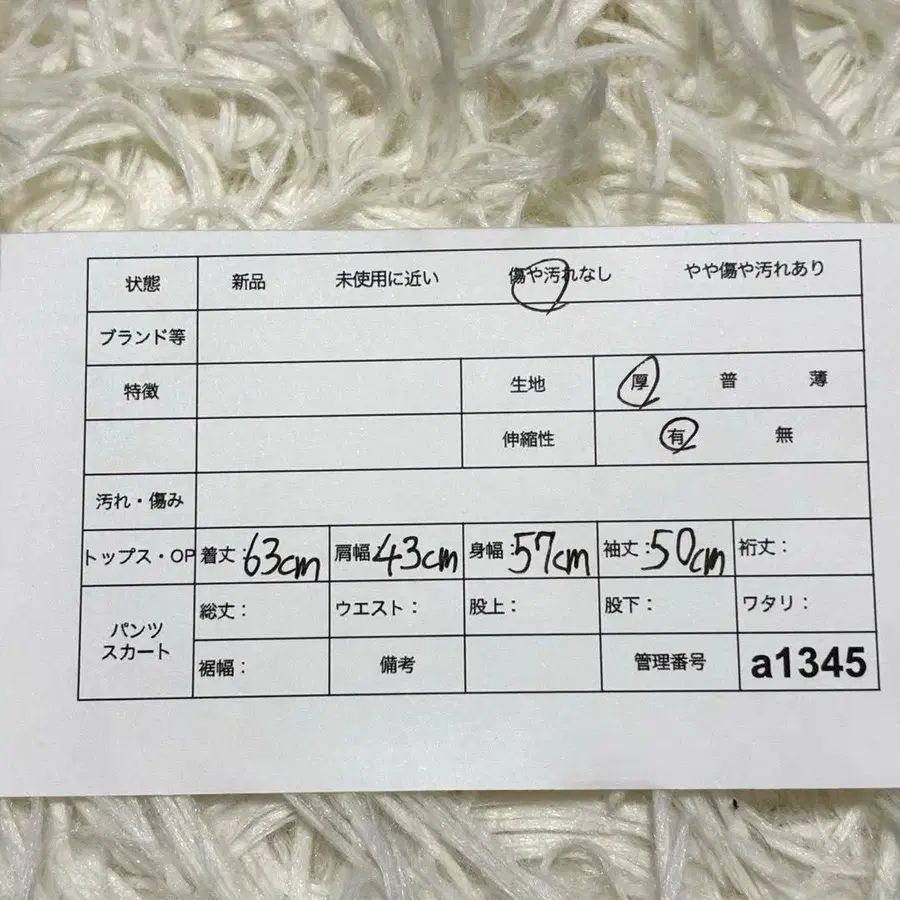 状態 新品 未使用に近い 傷や汚れなし やや傷や汚れあり
ブランド等
特徴 生地 厚 普 薄
伸縮性 有 無
汚れ・傷み
トップス・OP 着丈：63cm 肩幅：43cm 身幅：57cm 袖丈：50cm 裄丈：
パンツ
スカート
総丈： ウエスト： 股上： 股下： ワタリ：
裾幅： 備考 管理番号 a1345